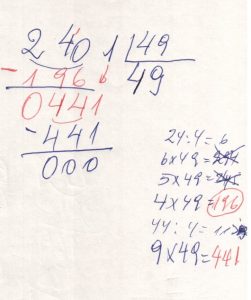 2401 49
-196 49
0441
-441
000
24:4=6
6x49=294
5x49=245
4x49=196
44:4=11
9x49=441